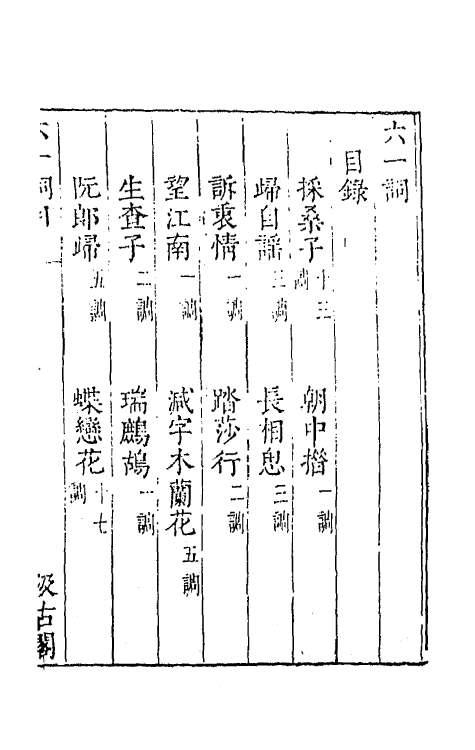 六一詞
目錄
採桑子十三調 朝中措一調
歸自謠三調 長相思三調
訴衷情一調 踏莎行二調
望江南一調 減字木蘭花五調
生查子二調 瑞鷓鴣一調
阮郎歸五調 蝶戀花十七調
六一詞目 汲古閣